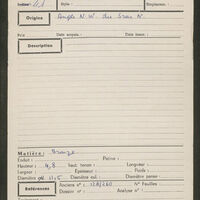 Indice: 41 Style: Emplacem.:
Origine Angle N.W. du Srai N.
Prix: Date acquis.: Date inven.:
Description
Matière: Bronze
Enduit: Patine:
Hauteur: 4,8 haut. tenon: Longueur:
Largeur: Épaisseur: Poids:
Diamètre 11,5 Diamètre col: Diamètre panse:
Références Anciens n° : 128/260 N° Feuilles:
Dossier: Analyse n° :